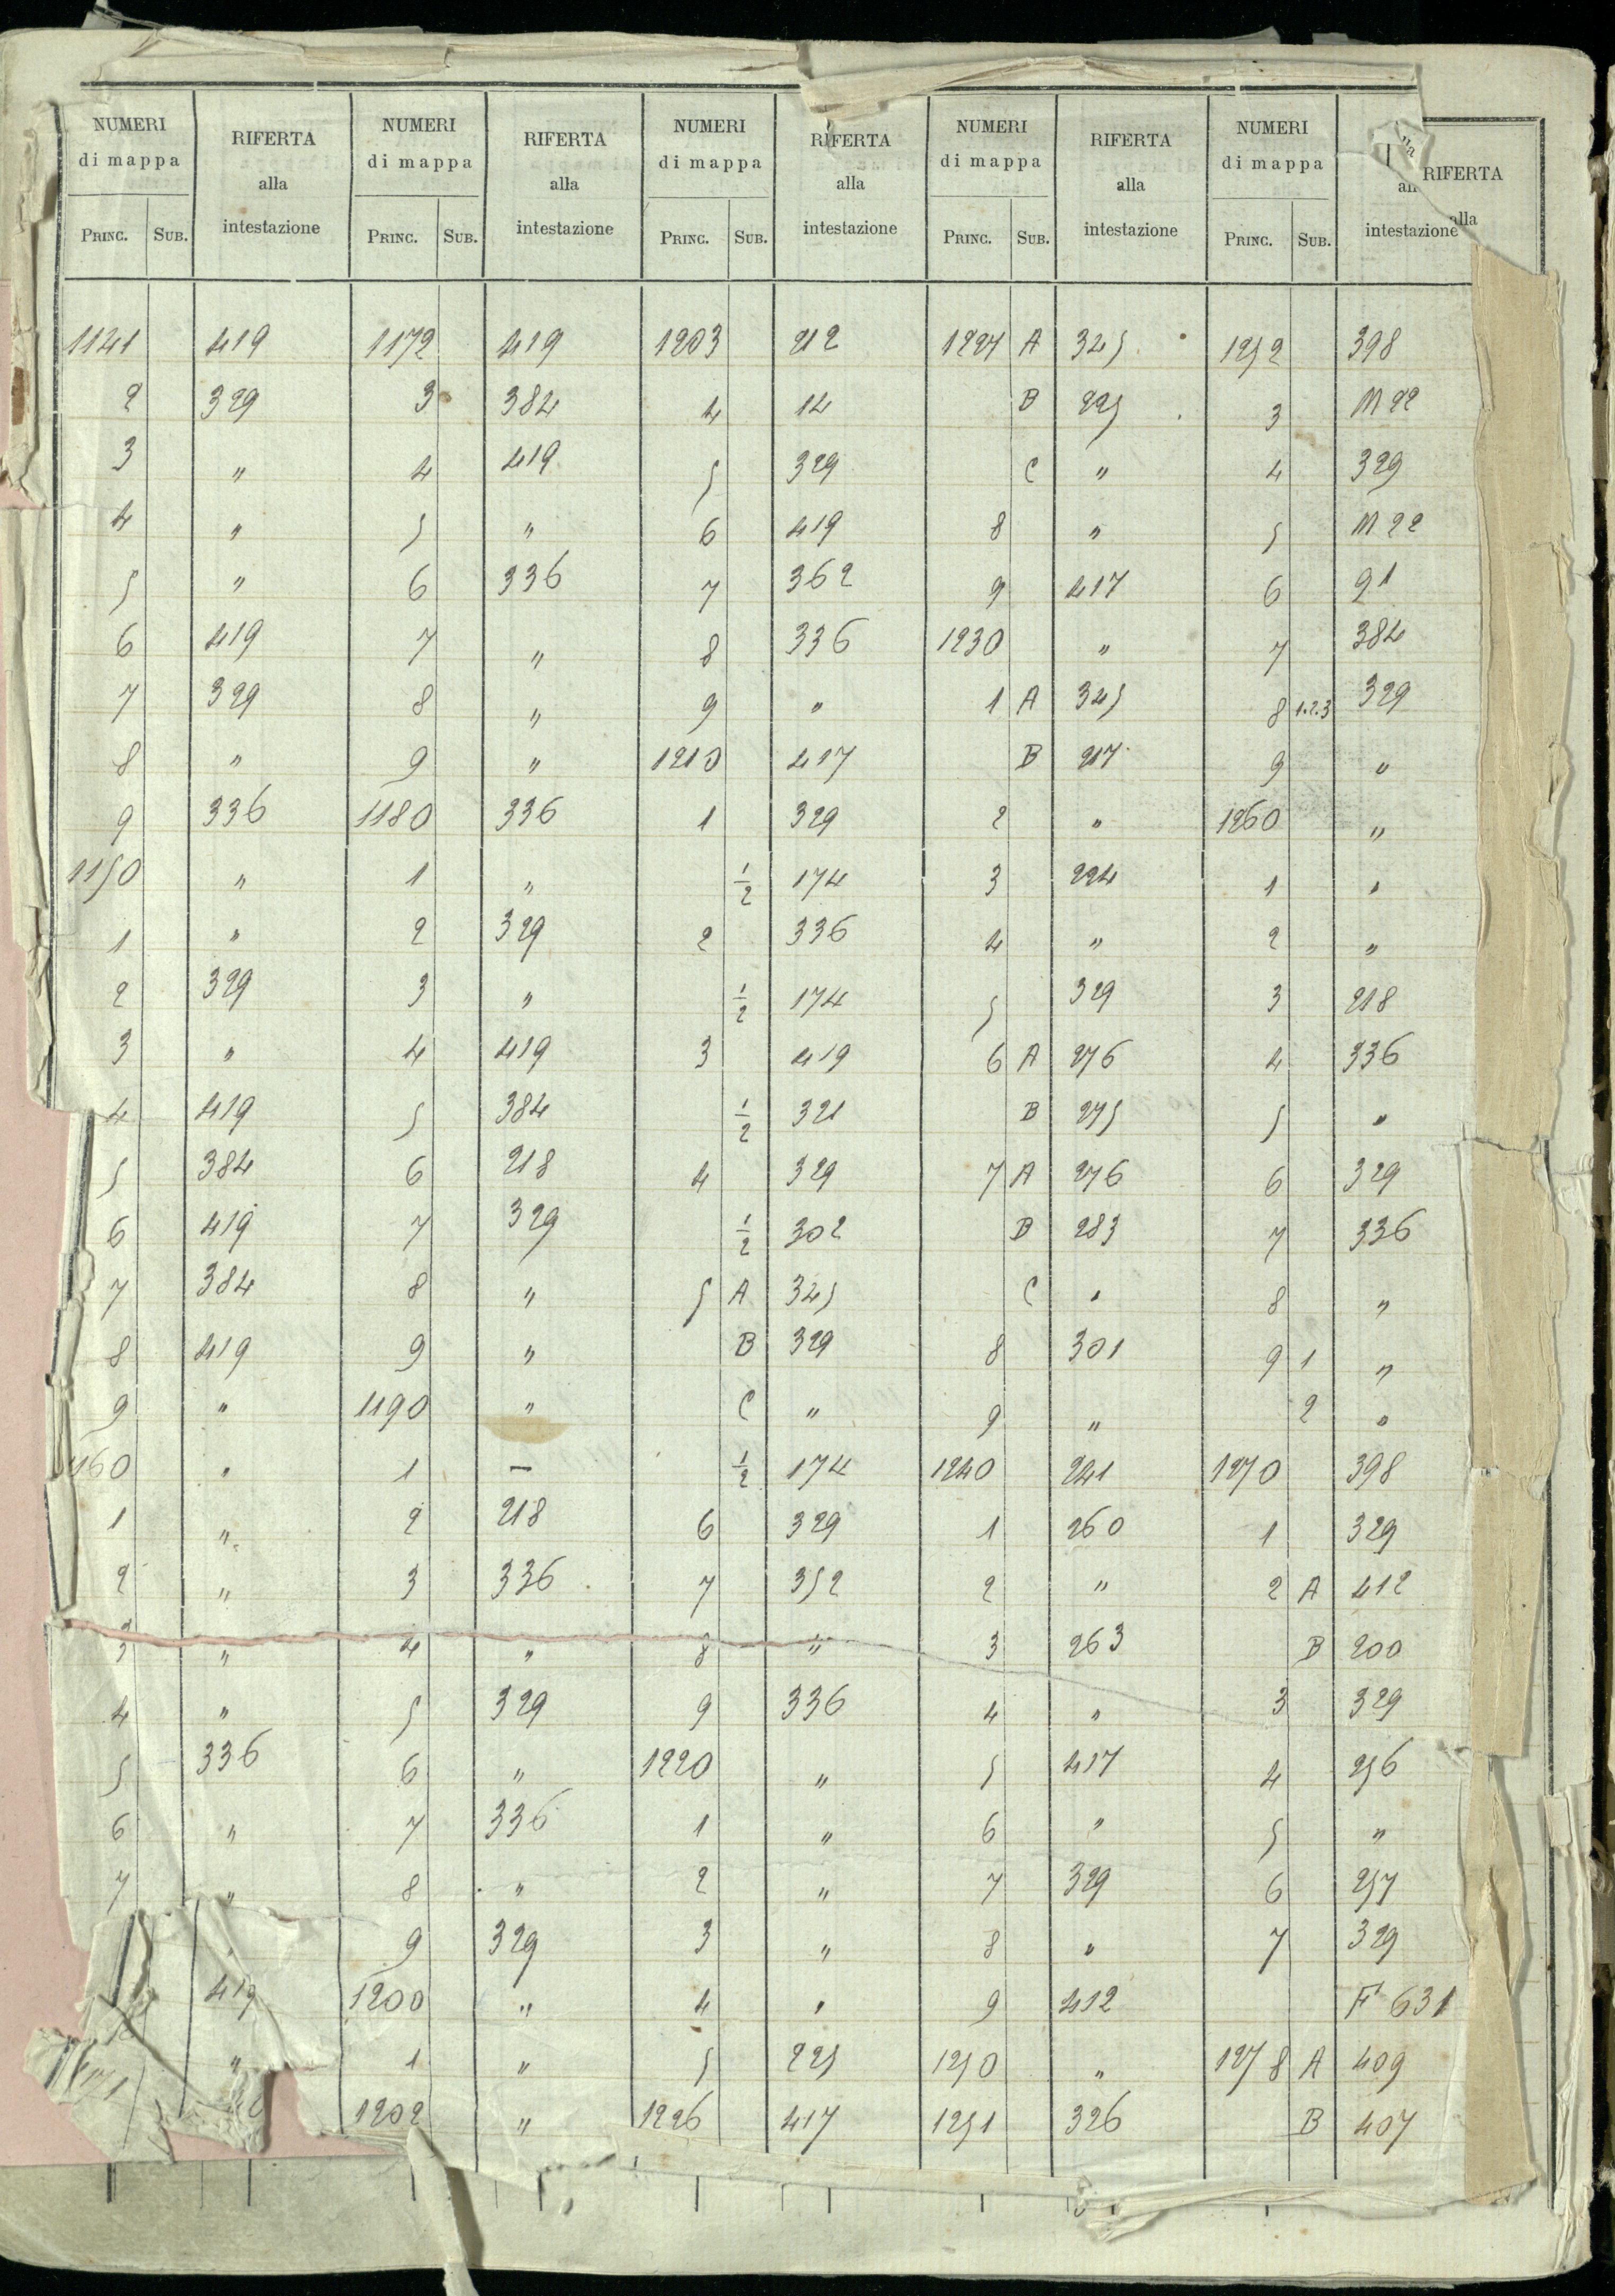 NUMERI RIFERTA NUMERI RIFERTA NUMERI RIFERTA NUMERI RIFERTA NUMERI RIFERTA
di mappa alla di mappa alla di mappa alla di mappa alla di mappa alla
PRINC. SUB. intestazione PRINC. SUB. intestazione PRINC. SUB. intestazione PRINC. SUB. intestazione PRINC. SUB. intestazione
1141 419 1172 419 1203 212 1227 A 325 1252 398
2 329 3 384 4 14 B 225 3 M 22
3 " 4 419 5 329 C " 4 329
4 " 5 " 6 419 8 " 5 M 22
5 " 6 336 7 362 9 417 6 91
6 419 7 " 8 336 1230 " 7 384
7 329 8 " 9 " 1 A 325 8 1.2.3 329
8 " 9 " 1210 417 B 217 9 "
9 336 1180 336 1 329 2 " 1260 "
1150 " 1 " 1/2 174 3 224 1 "
1 " 2 329 2 336 4 " 2 "
2 329 3 " 1/2 174 5 329 3 218
3 " 4 419 3 419 6 A 276 4 336
4 419 5 384 1/2 321 B 275 5 "
5 384 6 218 4 329 7 A 276 6 329
6 419 7 329 1/2 302 B 283 7 336
7 384 8 " 5 A 325 C " 8 "
8 419 9 " B 329 8 301 9 1 "
9 " 1190 " C " 9 " 2 "
1160 " 1 — 1/2 174 1240 241 1270 398
1 " 2 218 6 329 1 260 1 329
2 " 3 336 7 352 2 " 2 A 412
3 " 4 " 8 " 3 263 B 200
4 " 5 329 9 336 4 " 3 329
5 336 6 " 1220 " 5 417 4 256
6 " 7 336 1 " 6 " 5 "
7 " 8 " 2 " 7 329 6 257
" 9 329 3 " 8 " 7 329
419 1200 " 4 " 9 412 F 631
" 1 " 5 225 1250 " 1278 A 409
1202 " 1226 417 1251 326 B 407
RIFERTA
alla